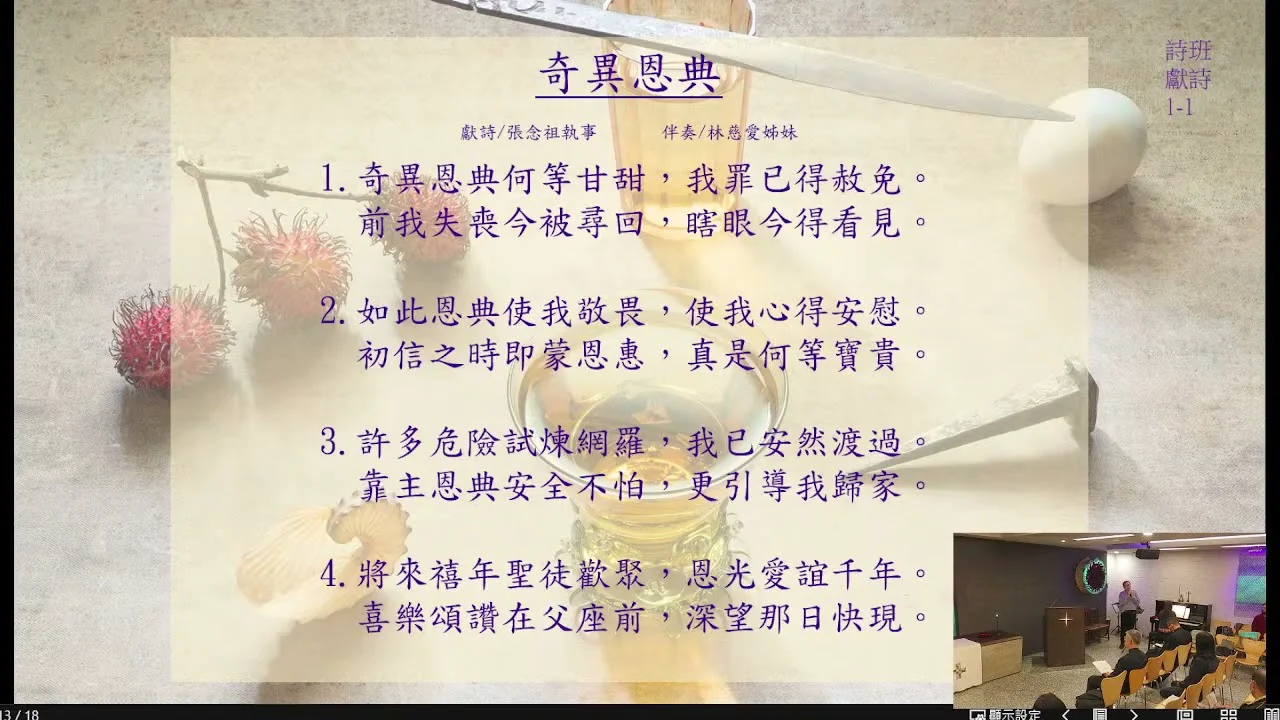 奇異恩典
獻詩/張念祖執事 伴奏/林慈愛姊妹
詩班
獻詩
1-1
1. 奇異恩典何等甘甜，我罪已得赦免。
前我失喪今被尋回，瞎眼今得看見。
2. 如此恩典使我敬畏，使我心得安慰。
初信之時即蒙恩惠，真是何等寶貴。
3. 許多危險試煉網羅，我已安然渡過。
靠主恩典安全不怕，更引導我歸家。
4. 將來禧年聖徒歡聚，恩光愛誼千年。
喜樂頌讚在父座前，深望那日快現。
13 / 18
顯示設定